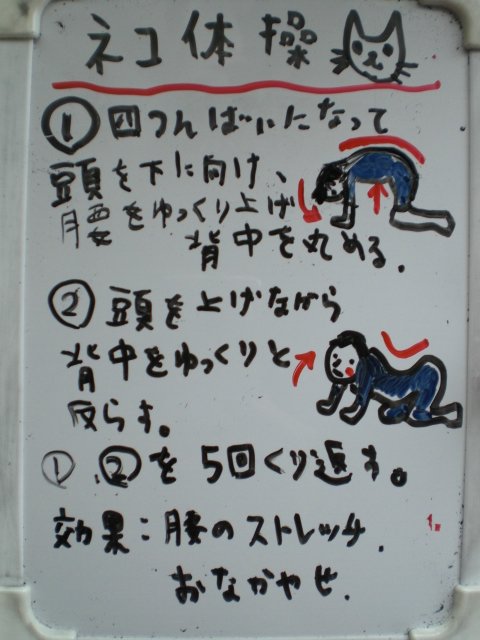 ネコ体操
① 四つんばいになって
頭を下に向け、
腰をゆっくり上げ
背中を丸める.
② 頭を上げながら
背中をゆっくりと
反らす。
① ②を5回くり返す。
効果:腰のストレッチ.
おなかやせ.